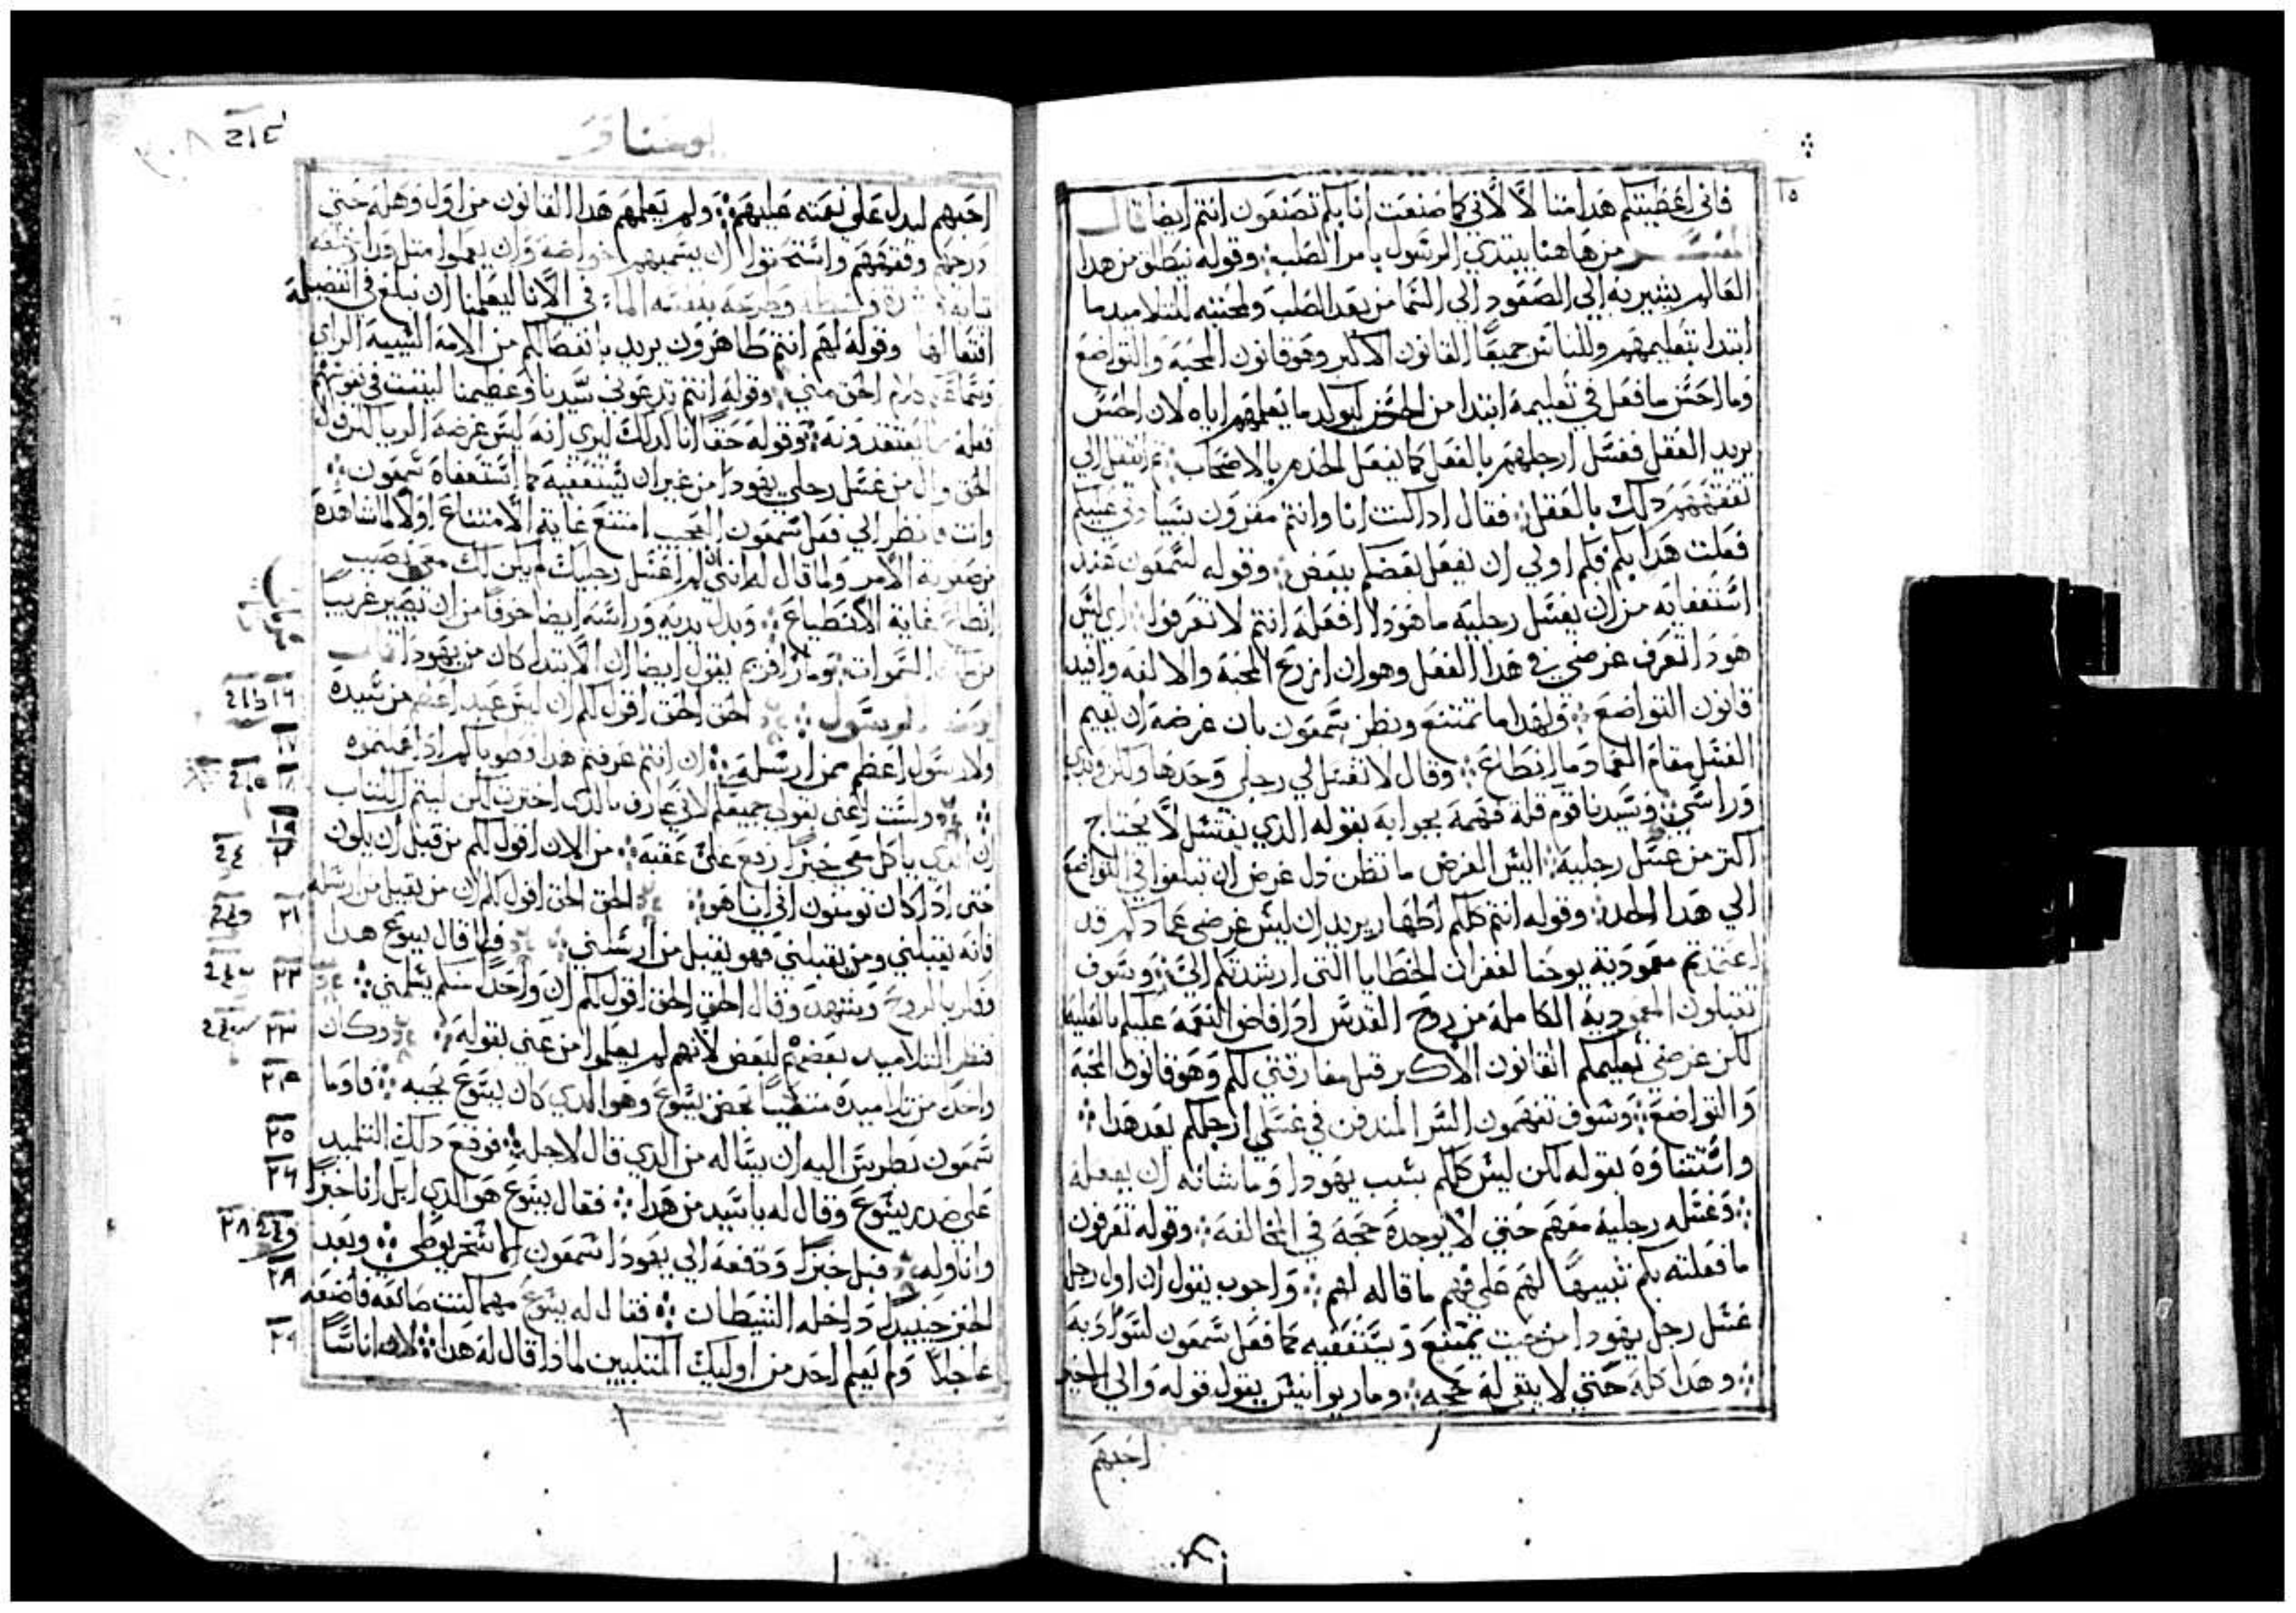 ١٥
فانى اعطيتكم هدا متالا لانى كما صنعت انا بكم تصنعون انتم ايضا قال
المفسر من هاهنا يبتدي الرسول بامر الصلب وقوله ينطلق من هدا
العالم يشير به الى الصعود الى السما من بعد الصلب ولمحبته للتلاميد ما
ابتدا بتعليمهم وللناس جميعا القانون الاكبر وهو قانون المحبة والتواضع
وما احسن ما فعل في تعليمه ابتدا من الحس ليوكد ما يعلمهم اياه لان الحس
يريد العقل فغسل ارجلهم بالفعل كما يفعل الخدم بالاصحاب ثم انتقل الي
تفقههم دلك بالعقل فقال ادا كنت انا وانتم مقرون بسيادتي عليكم
فعلت هدا بكم فكم اولي ان يفعل بعضكم ببعض وقوله لشمعون عند
استعفايه من ان يغسل رجليه ما هودا افعله انتم لا تعرفوا اي ليس
هودا تعرف غرضي في هدا الفعل وهو ان ازرع المحبة والالفه وافيد
قانون التواضع ولهدا ما تمتنع ونظر شمعون بان غرضه ان يقيم
الغسل مقام العماد فما انطاع وقال لا تغسل لي رجلي وحدها ولكن ويدي
وراسي وسيدنا قوم قلة فهمه بجوابه بقوله الدي يغتسل لا يحتاج
اكتر من غسل رجليه اليس الغرض ما تظن بل غرضي ان تبلغوا في التواضع
الي هدا الحد وقوله انتم كلكم اطهار يريد ان ليس غرضي عمادكم قد
اعتمدتم معمودية يوحنا لغفران الخطايا التى ارشدتكم الي وسوف
تقبلون المعمودية الكاملة من روح القدس ادا فاض النعمة عليكم بالعلية
لكن غرضي تعليمكم القانون الاكبر قبل مفارقتي لكم وهو قانون المحبة
والتواضع وسوف تفهمون السر المندفن في غسلي ارجلكم بعد هدا
واستتناوه بقوله لكن ليس كلكم بسبب يهودا وما شانه ان يفعله
وغسله رجليه معهم حتي لا يوجده حجة في المخالفة وقوله تعرفون
ما فعلته بكم تنبيها لهم علي فهم ما قاله لهم واحوب يقول ان اول رجل
غسل رجل يهودا من حيت يمتنع ويستعفيه كما فعل شمعون لسوادبه
وهدا كله حتي لا يبقى له حجه وماريوانيس يقول قوله والي الاخير
احبهم
يوحنا قر
احبهم ليدل على نعمته عليهم ولم يعلمهم هدا القانون من اول وهلة حتي
درجهم وفقههم واستحقوا ان يسميهم اخواضه وان يعملوا متل وراتزره
تيابه وسطه وطرحه بنفسه الما في الانا ليعلمنا ان نبلغ في الفضيلة
اقتعالها وقوله لهم انتم طاهرون يريد بانفصالكم من الامة السيية الراي
الحق مني وقوله انتم تدعوني سيدنا وعظيمنا ليتبت في نفوسهم
فعله ما يعتقدونه وقوله حقا انا كدلك ليري انه ليس غرضه الريا لكن قول
الحق وال من غسل رجلي يهودا من غير ان يستعفيه كما استعفاه شمعون
وانت فانظر الي فعل شمعون العجيب امتنع غاية الامتناع اولا لما شاهده
من صعوبة الامر ولما قال له انني ان لم اغسل رجليك لم يكن لك معي نصيب
انطاع غاية الانطياع وبدل يديه وراسه ايضا خوفا من ان يصير غريبا
من السموات وماراافريم يقول ايضا ان الابتدا كان من يهودا قال
الرسول الحق الحق اقول لكم ان ليس عبد اعظم من سيده
ولا رسول اعظم ممن ارسله ان انتم عرفتم هدا فطوباكم ادا عملتموه
ولست اعنى بقولي جميعكم لاني عارف بالدي اخترت لكن ليتم الكتاب
ان الدي ياكل معي خبزا رفع على عقبه من الان اقول لكم من قبل ان يكون
حتى ادا كان تومنون اني انا هو الحق الحق اقول لكم ان من يقبل من ارسله
فانه يقبلني ومن يقبلني فهو يقبل من ارسلني فلما قال يسوع هدا
قلق بالروح وشهد وقال الحق الحق اقول لكم ان واحدا منكم يسلمني
فنظر التلاميد بعضهم لبعض لانهم لم يعلموا من عنى بقوله وكان
واحد من تلاميده متكيا بحضن يسوع وهو الدي كان يسوع يحبه فاوما
شمعون بطرس اليه ان يساله من الدي قال لاجله فوقع دلك التلميد
علي صدر يسوع وقال له يا سيد من هدا فقال يسوع هو الدي ابل انا خبزا
واناوله فبل خبزا ودفعه الي يهودا شمعون الاسخريوطي وبعد
الخبز حينيد داخله الشيطان فقال له يسوع مهما كنت صانعه فاصنعه
عاجلا ولم يعلم احد من اوليك المتكيين لمادا قال له هدا لان اناسا
١٦
١٧
١٨
١٩
٢٠
٢١
٢٢
٢٣
٢٤
٢٥
٢٦
٢٨
٢٩